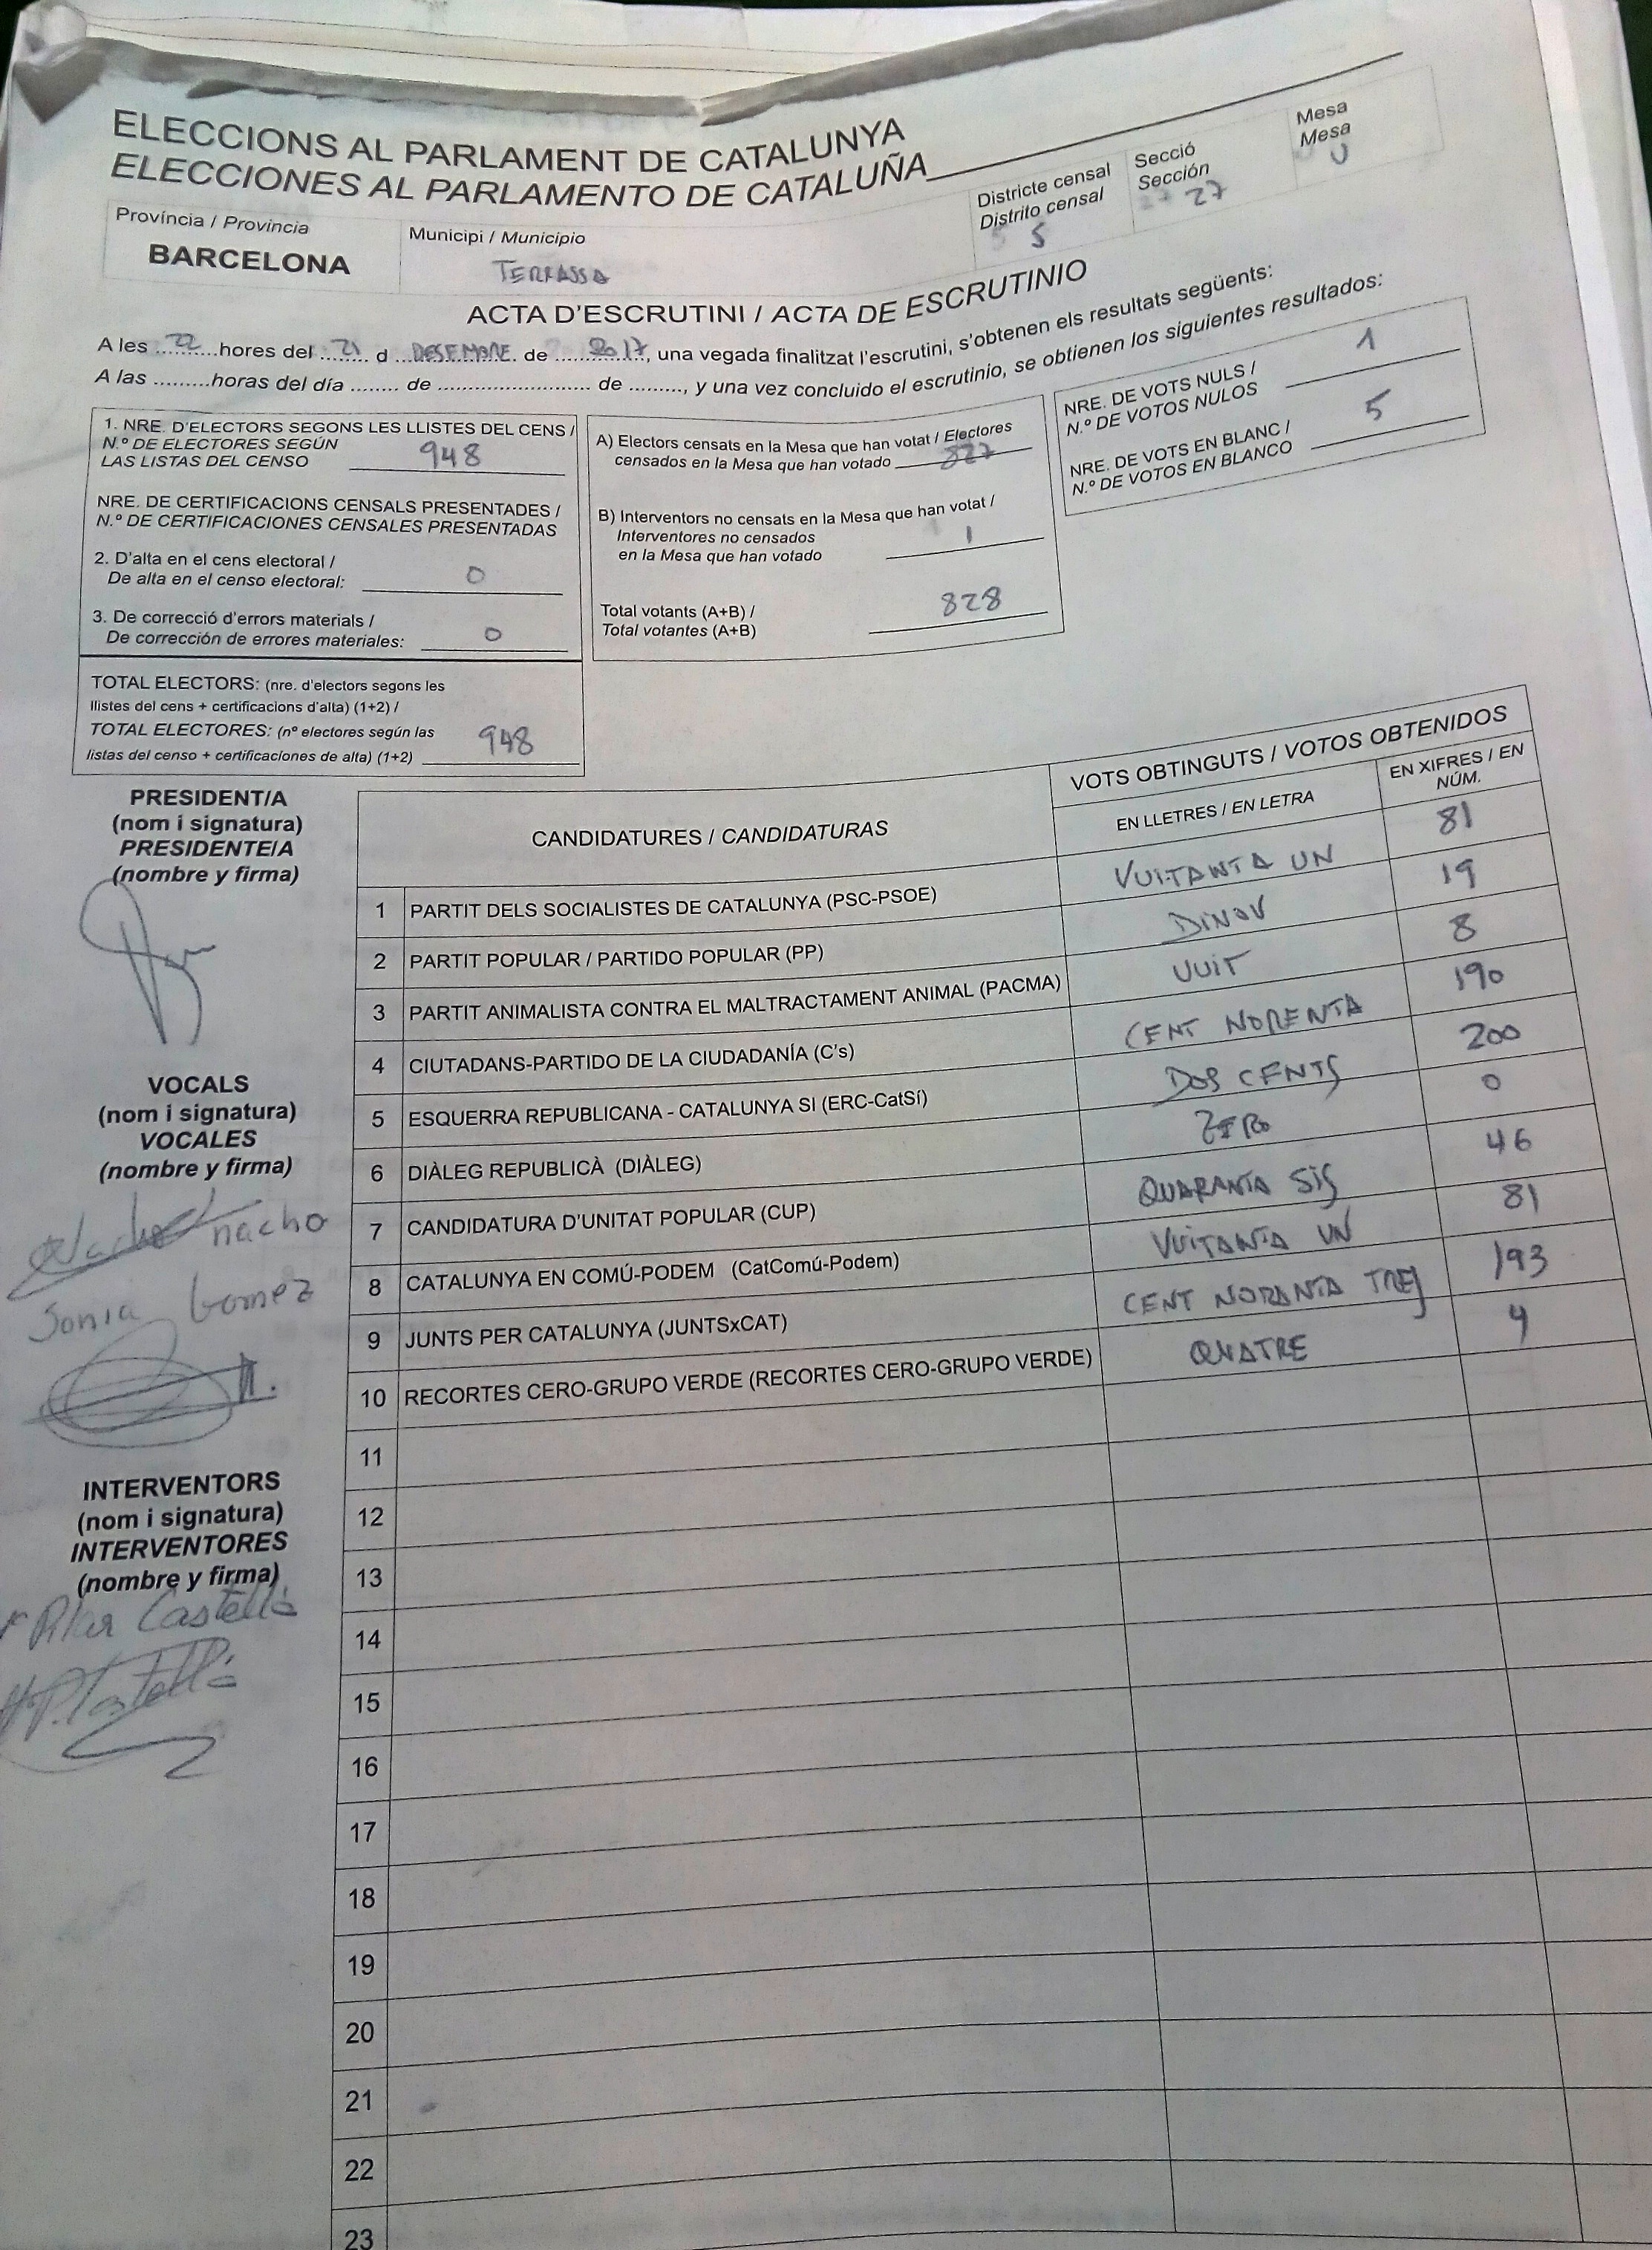 ELECCIONS AL PARLAMENT DE CATALUNYA
ELECCIONES AL PARLAMENTO DE CATALUÑA
Província / Provincia
BARCELONA
Municipi / Municipio
TERRASSA
Districte censal
Distrito censal
5
Secció
Sección
27
Mesa
Mesa
U
ACTA D'ESCRUTINI / ACTA DE ESCRUTINIO
A les 22 hores del 21 d DESEMBRE de 2017, una vegada finalitzat l'escrutini, s'obtenen els resultats següents:
A las .........horas del día ........ de .............................. de ........., y una vez concluido el escrutinio, se obtienen los siguientes resultados:
1. NRE. D'ELECTORS SEGONS LES LLISTES DEL CENS /
N.º DE ELECTORES SEGÚN
LAS LISTAS DEL CENSO 948
NRE. DE CERTIFICACIONS CENSALS PRESENTADES /
N.º DE CERTIFICACIONES CENSALES PRESENTADAS
2. D'alta en el cens electoral /
De alta en el censo electoral: 0
3. De correcció d'errors materials /
De corrección de errores materiales: 0
TOTAL ELECTORS: (nre. d'electors segons les
llistes del cens + certificacions d'alta) (1+2) /
TOTAL ELECTORES: (nº electores según las
listas del censo + certificaciones de alta) (1+2) 948
A) Electors censats en la Mesa que han votat / Electores
censados en la Mesa que han votado 827
B) Interventors no censats en la Mesa que han votat /
Interventores no censados
en la Mesa que han votado 1
Total votants (A+B) /
Total votantes (A+B) 828
NRE. DE VOTS NULS /
N.º DE VOTOS NULOS 1
NRE. DE VOTS EN BLANC /
N.º DE VOTOS EN BLANCO 5
PRESIDENT/A
(nom i signatura)
PRESIDENTE/A
(nombre y firma)
VOCALS
(nom i signatura)
VOCALES
(nombre y firma)
nacho
Sonia Gomez
INTERVENTORS
(nom i signatura)
INTERVENTORES
(nombre y firma)
Pilar Castellà
CANDIDATURES / CANDIDATURAS
VOTS OBTINGUTS / VOTOS OBTENIDOS
EN LLETRES / EN LETRA
EN XIFRES / EN NÚM.
1 PARTIT DELS SOCIALISTES DE CATALUNYA (PSC-PSOE) VUITANTA UN 81
2 PARTIT POPULAR / PARTIDO POPULAR (PP) DINOU 19
3 PARTIT ANIMALISTA CONTRA EL MALTRACTAMENT ANIMAL (PACMA) VUIT 8
4 CIUTADANS-PARTIDO DE LA CIUDADANÍA (C's) CENT NORENTA 190
5 ESQUERRA REPUBLICANA - CATALUNYA SI (ERC-CatSí) DOS CENTS 200
6 DIÀLEG REPUBLICÀ (DIÀLEG) ZERO 0
7 CANDIDATURA D'UNITAT POPULAR (CUP) QUARANTA SIS 46
8 CATALUNYA EN COMÚ-PODEM (CatComú-Podem) VUITANTA UN 81
9 JUNTS PER CATALUNYA (JUNTSxCAT) CENT NORANTA TRES 193
10 RECORTES CERO-GRUPO VERDE (RECORTES CERO-GRUPO VERDE) QUATRE 4
11
12
13
14
15
16
17
18
19
20
21
22
23